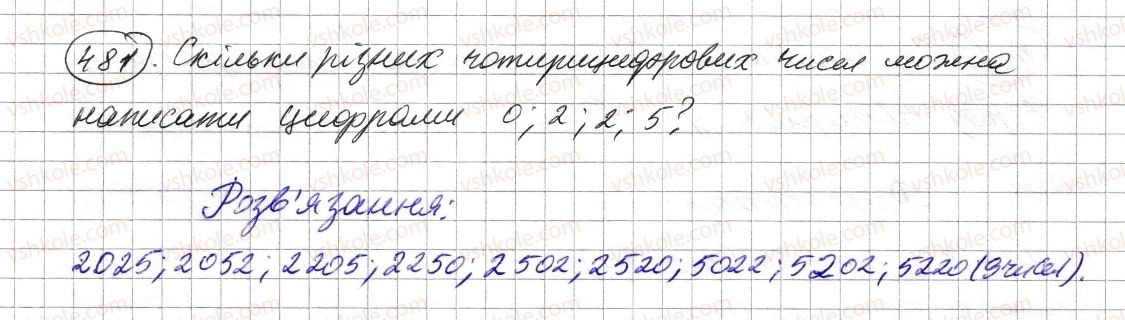 481. Скільки різних чотирицифрових чисел можна
написати цифрами 0; 2; 2; 5?
Розв'язання:
2025; 2052; 2205; 2250; 2502; 2520; 5022; 5202; 5220 (9 чисел).